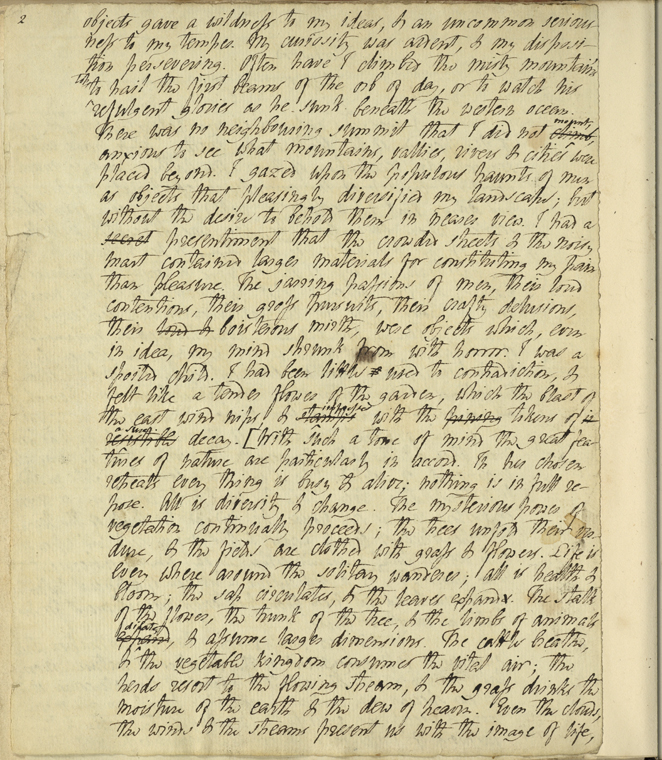 2
objects gave a wildness to my ideas, & an uncommon serious-
ness to my temper. My curiosity was ardent, & my disposi-
tion persevering. Often have I climbed the misty mountain's
top to hail the first beams of the orb of day, or to watch his
refulgent glories as he sunk beneath the western ocean.
There was no neighbouring summit that I did not climb, mount,
anxious to see what mountains, vallies, rivers & cities were
placed beyond. I gazed upon the populous haunts of men
as objects that pleasingly diversified my landscape; but
without the desire to behold them in nearer view. I had a
secret presentiment that the crowded streets & the noisy
mart contained larger materials for constituting my pain
than pleasure. The jarring passions of men, their loud
contentions, their gross pursuits, their crafty delusions,
their loud & boisterous mirth, were objects which, even
in idea, my mind shrunk from with horror. I was a
spoiled child. I had been little used to contradiction, &
felt like a tender flower of the garden, which the blast of
the east wind nips, & stamps impresses with the tokens of
a decay. [With such a tone of mind the great fea-
tures of nature are particularly in accord. In her chosen
retreats every thing is busy & alive; nothing is in full re-
pose. All is diversity & change. The mysterious power of
vegetation continually proceeds; the trees unfold their ver-
dure, & the fields are clothed with grass & flowers. Life is
every where around the solitary wanderer; all is health &
bloom; the sap circulates, & the leaves expand. The stalk
of the flower, the trunk of the tree, & the limbs of animals
expand, dilate, & assume larger dimensions. The cattle breathe,
& the vegetable kingdom consumes the vital air; the
herds resort to the flowing stream, & the grass drinks the
moisture of the earth & the dew of heaven. Even the clouds,
the winds & the streams present us with the image of life,